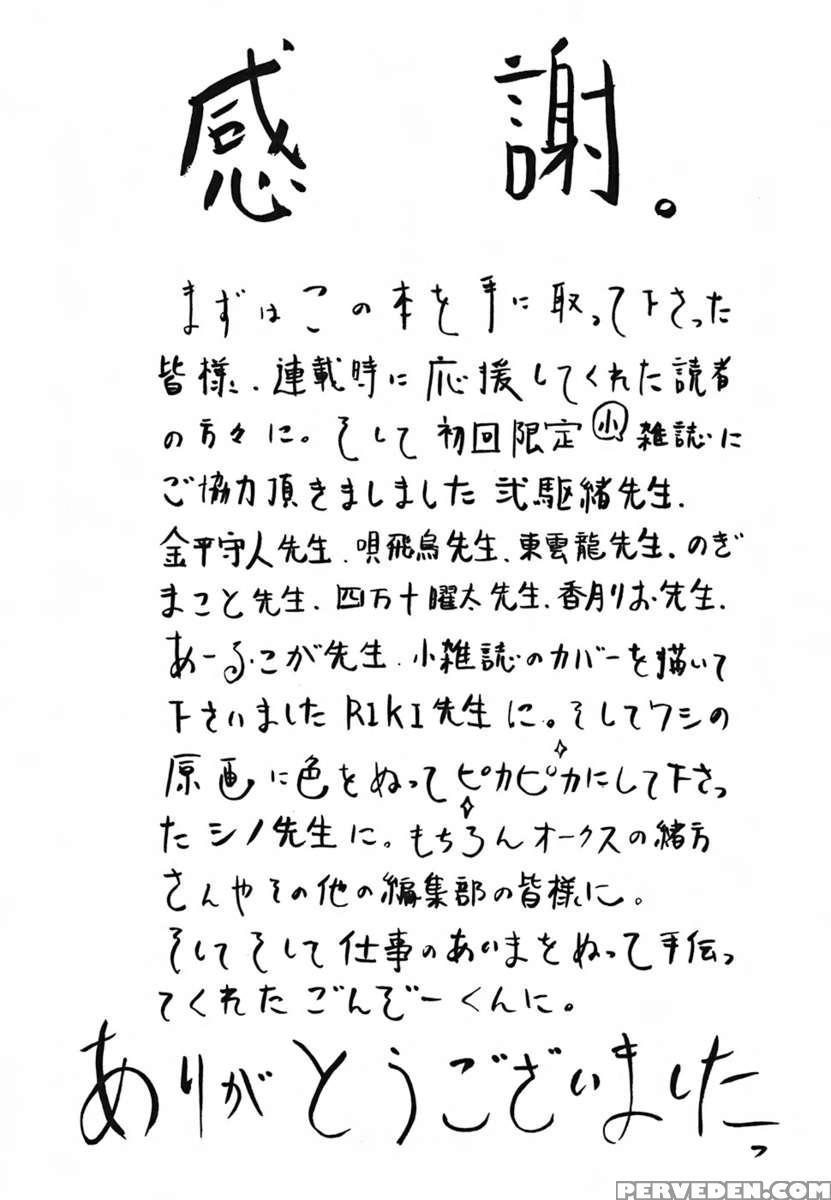 感謝。
まずはこの本を手に取って下さった
皆様、連載時に応援してくれた読者
の方々に。そして初回限定小雑誌に
ご協力頂きましました弐駆緒先生、
金平守人先生、唄飛鳥先生、東雲龍先生、のぎ
まこと先生、四万十曜太先生、香月りお先生、
あーる・こが先生、小雑誌のカバーを描いて
下さいましたRIKI先生に。そしてワシの
原画に色をぬってピカピカにして下さっ
たシノ先生に。もちろんオークスの緒方
さんやその他の編集部の皆様に。
そしてそして仕事のあいまをぬって手伝っ
てくれたごんぞーくんに。
ありがとうございましたーっ
PERVEDEN.COM